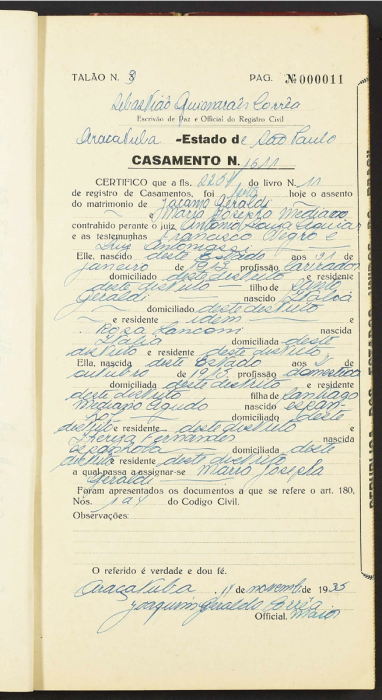 TALÃO N. 8 PAG. Nº 000011
Sebastião Guimarães Corrêa
Escrivão de Paz e Official do Registro Civil
Araçatuba -Estado de São Paulo
CASAMENTO N. 1611
CERTIFICO que a fls. do livro N. 11
de registro de Casamentos, foi feito hoje o assento
do matrimonio de Geraldi
e Maria Josepha Mediano
contrahido perante o juiz Antonio Souza Aguiar
e as testemunhas Francisco Negro e
Luiz
Elle, nascido deste Estado aos 31 de
janeiro de profissão lavrador
domiciliado deste districto e residente
deste districto filho de
Geraldi nascido Italia
domiciliado deste districto
e residente idem e
Rosa Zanconi nascida
Italia domiciliada deste
districto e residente deste districto
Ella, nascida deste Estado aos de
outubro de profissão domestica
domiciliada deste districto e residente
deste districto filha de Santiago
Mediano Agudo nascido espan-
hol domiciliado deste
districto e residente deste districto
e Thereza Fernandes nascida
espanhola domiciliada deste
districto e residente deste districto
a qual passa a assignar-se Maria Josepha
Geraldi
Foram apresentados os documentos a que se refere o art. 180,
Nós. 1 a 4 do Codigo Civil.
Observações:
O referido é verdade e dou fé.
Araçatuba, 14 de novembro de 1935
Joaquim Geraldo Corrêa
Official. Maior